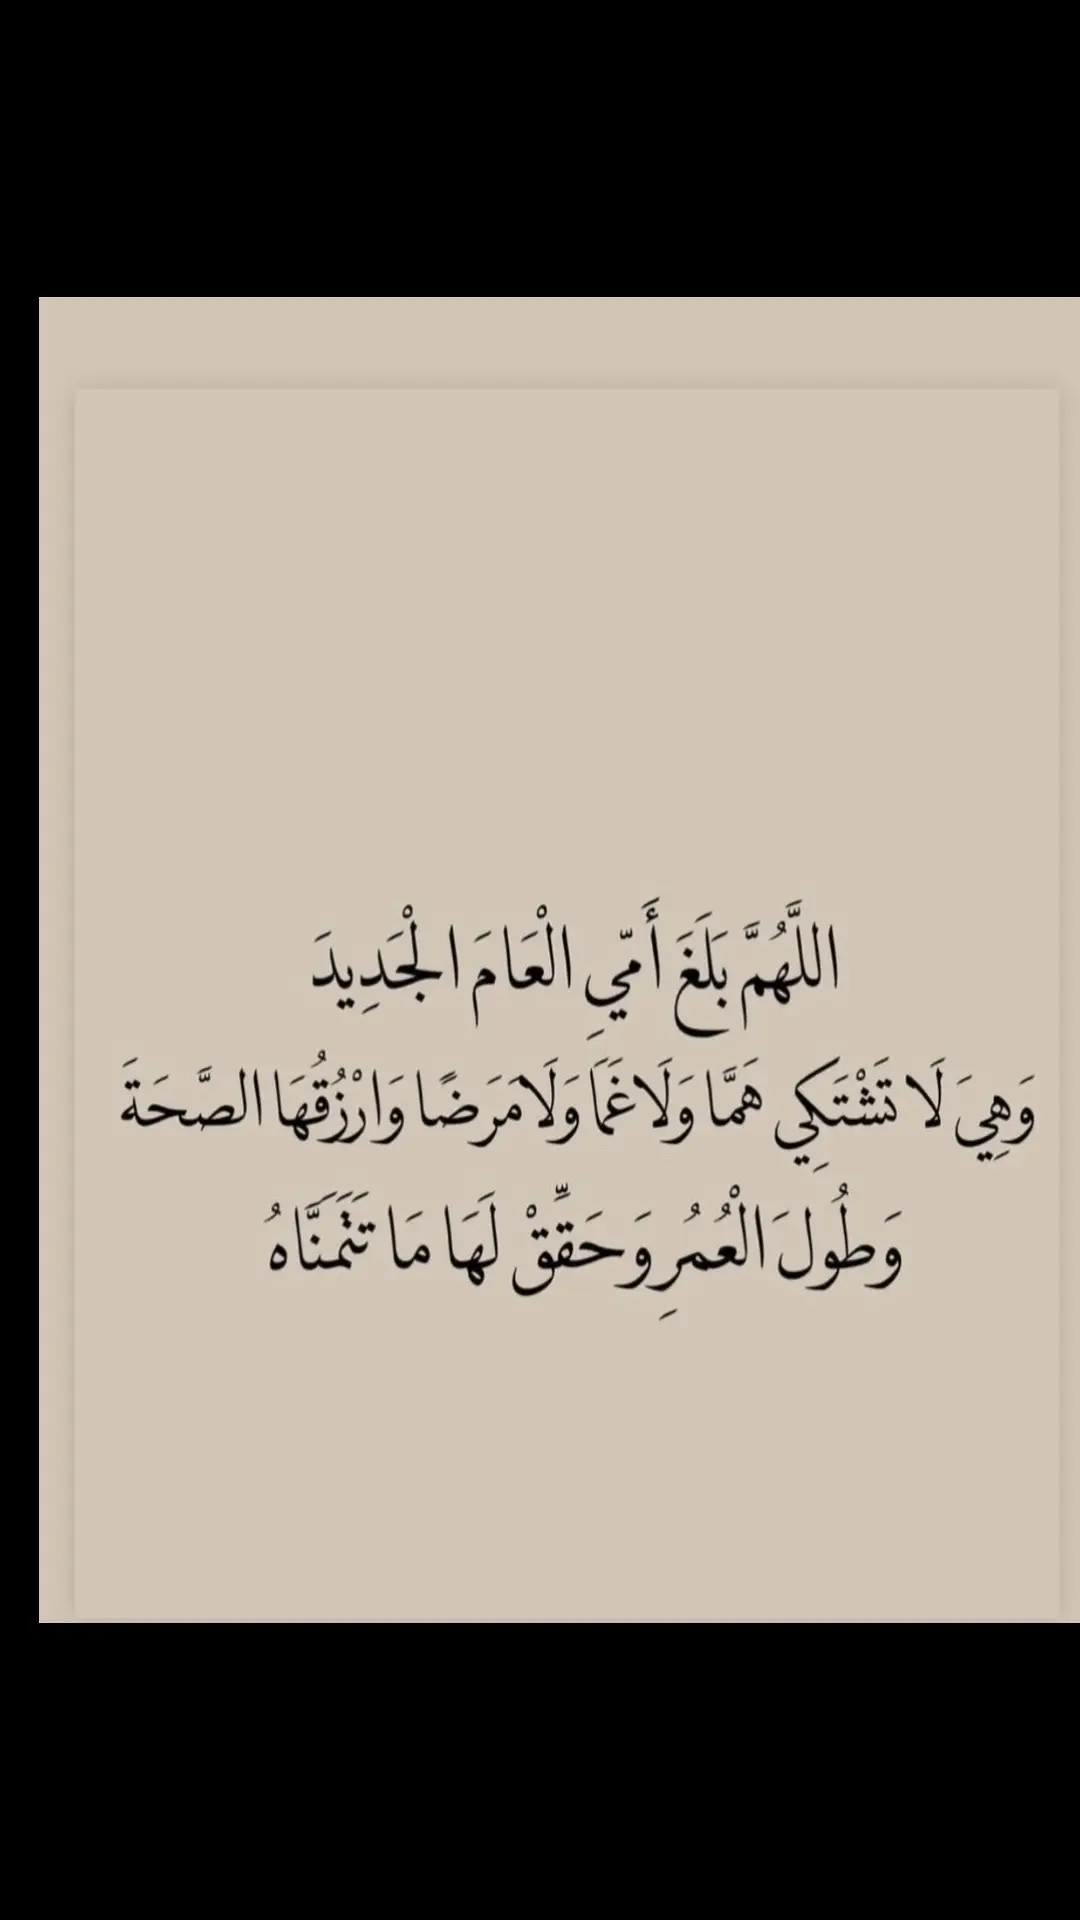 اللَّهُمَّ بَلَغَ أَمّيِ الْعَامَ الْجَدِيدَ
وَهِيَ لَا تَشْتَكِي هَمَّا وَلَا غَمَا وَلَا مَرَضًا وَارْزُقُهَا الصَّحَةَ
وَطُولَ الْعُمُرِ وَحَقِّقْ لَهَا مَا تَتَمَنَّاهُ